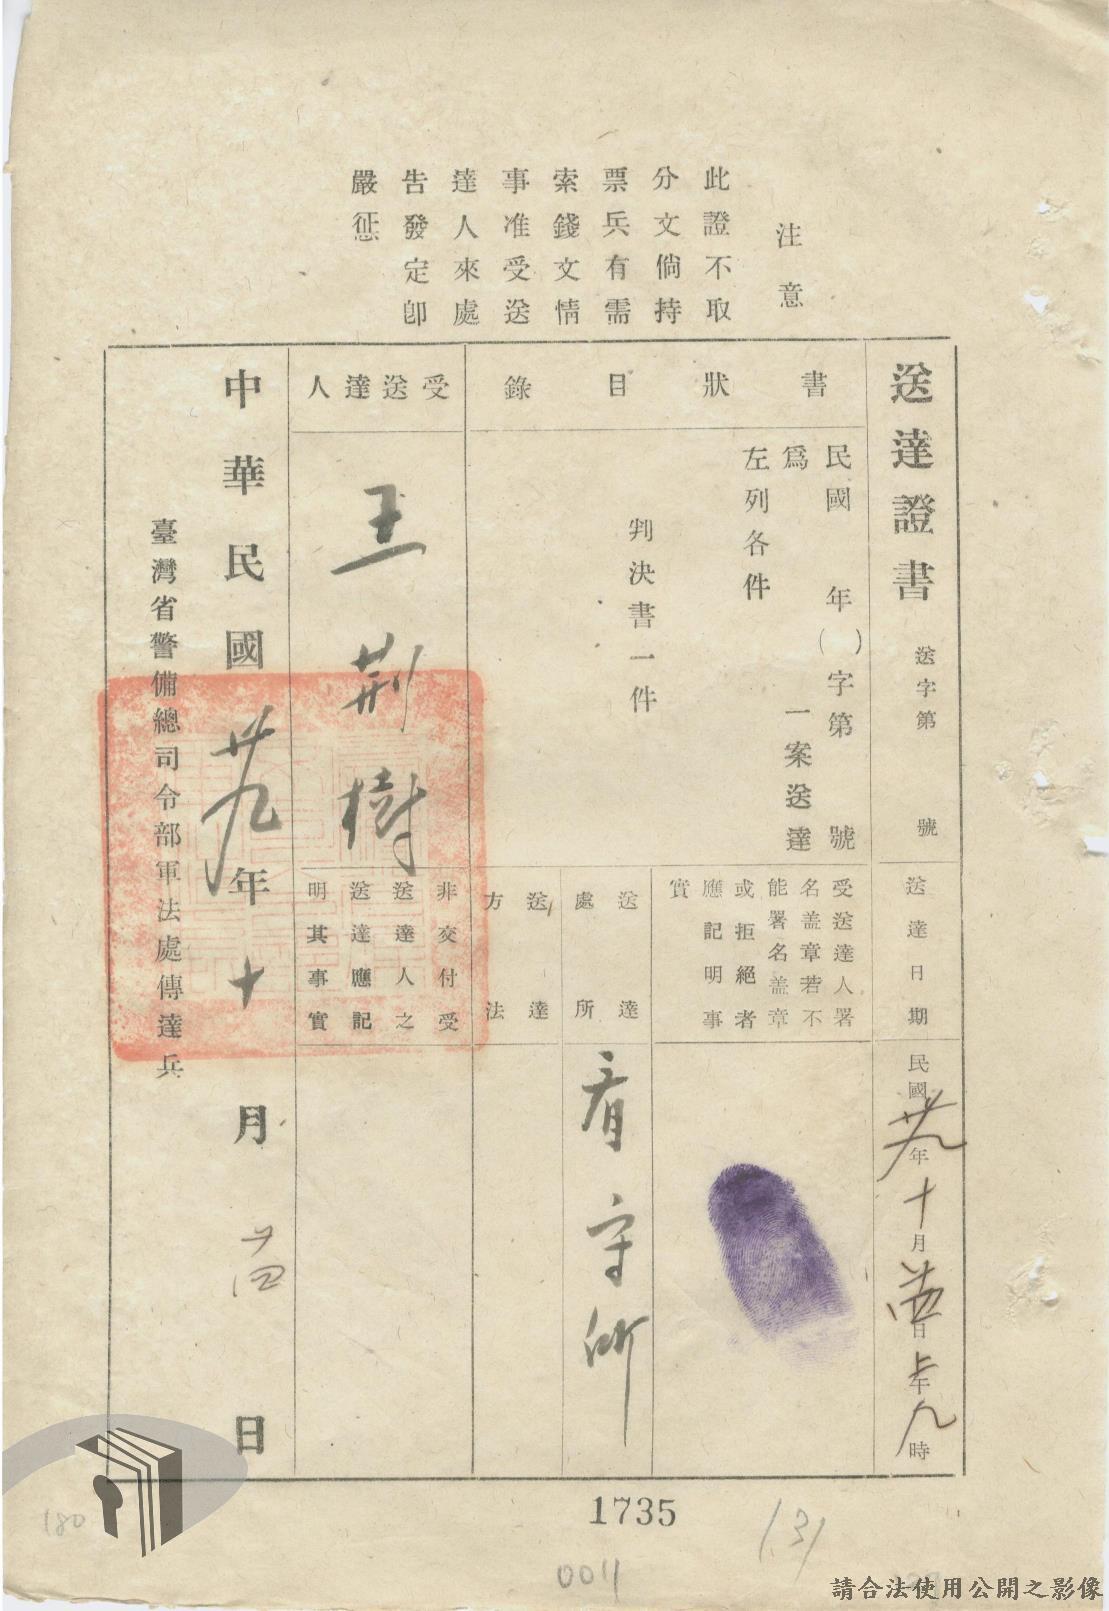 注意
此證不取
分文倘持
票兵有需
索錢文情
事准受送
達人來處
告發定卽
嚴懲
送達證書
送字第 號
送達日期
民國卅九年十月廿四日上午九時
書狀目錄
民國 年( )字第 號
爲 一案送達
左列各件
判決書一件
受送達人署
名盖章若不
能署名盖章
或拒絕者
應記明事
實
送達處所
看守所
送達方法
受送達人
王荆樹
非交付受
送達人之
送達應記
明其事實
中華民國卅九年十月廿四日
臺灣省警備總司令部軍法處傳達兵
1735
131
0011
180
請合法使用公開之影像